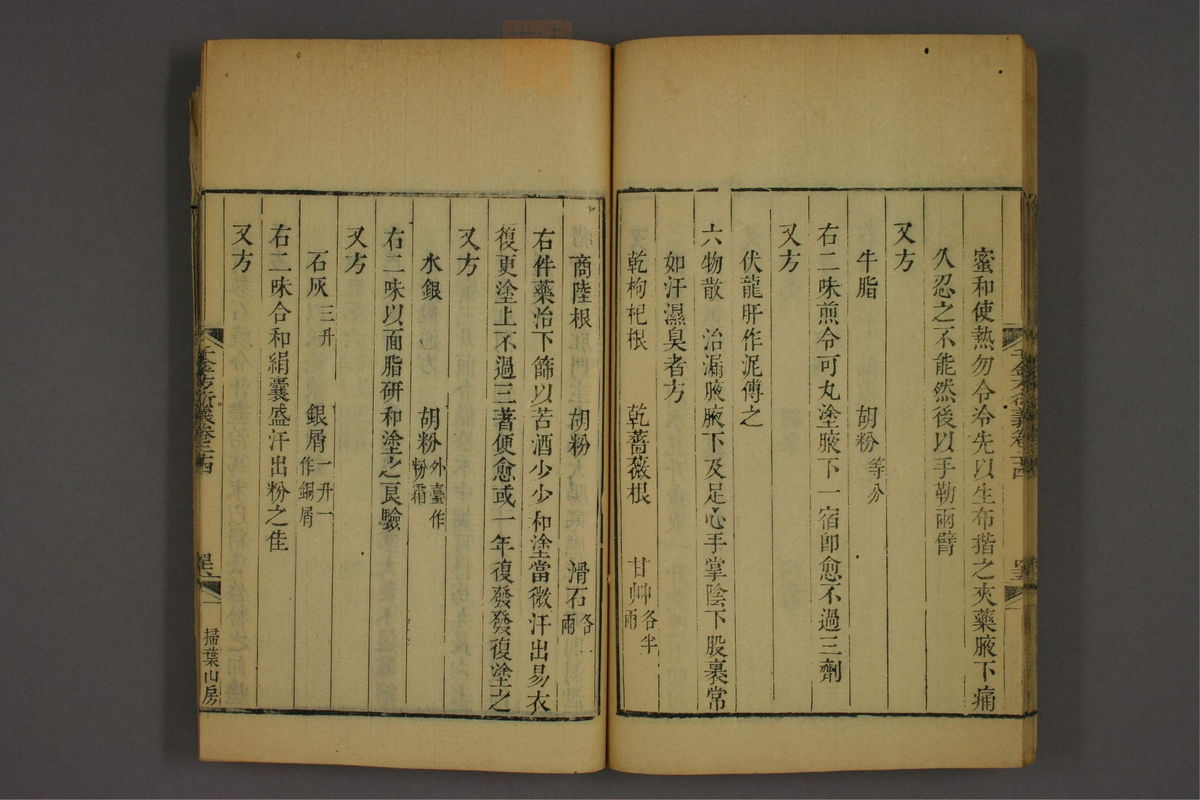 蜜和使熱勿令冷先以生布揩之夾藥腋下痛
久忍之不能然後以手勒兩臂
又方
牛脂 胡粉等分
右二味煎令可丸塗腋下一宿卽愈不過三劑
又方
伏龍肝作泥傅之
六物散 治漏腋腋下及足心手掌陰下股裏常
如汗濕臭者方
乾枸杞根 乾薔薇根 甘艸各半兩
商陸根 胡粉 滑石各一兩
右件藥治下篩以苦酒少少和塗當微汗出易衣
復更塗上不過三著便愈或一年復發發復塗之
又方
水銀 胡粉外臺作粉霜
右二味以面脂研和塗之良驗
又方
石灰三升 銀屑一升一作銅屑
右二味合和絹囊盛汗出粉之佳
又方
千金方衍義卷二十四
掃葉山房